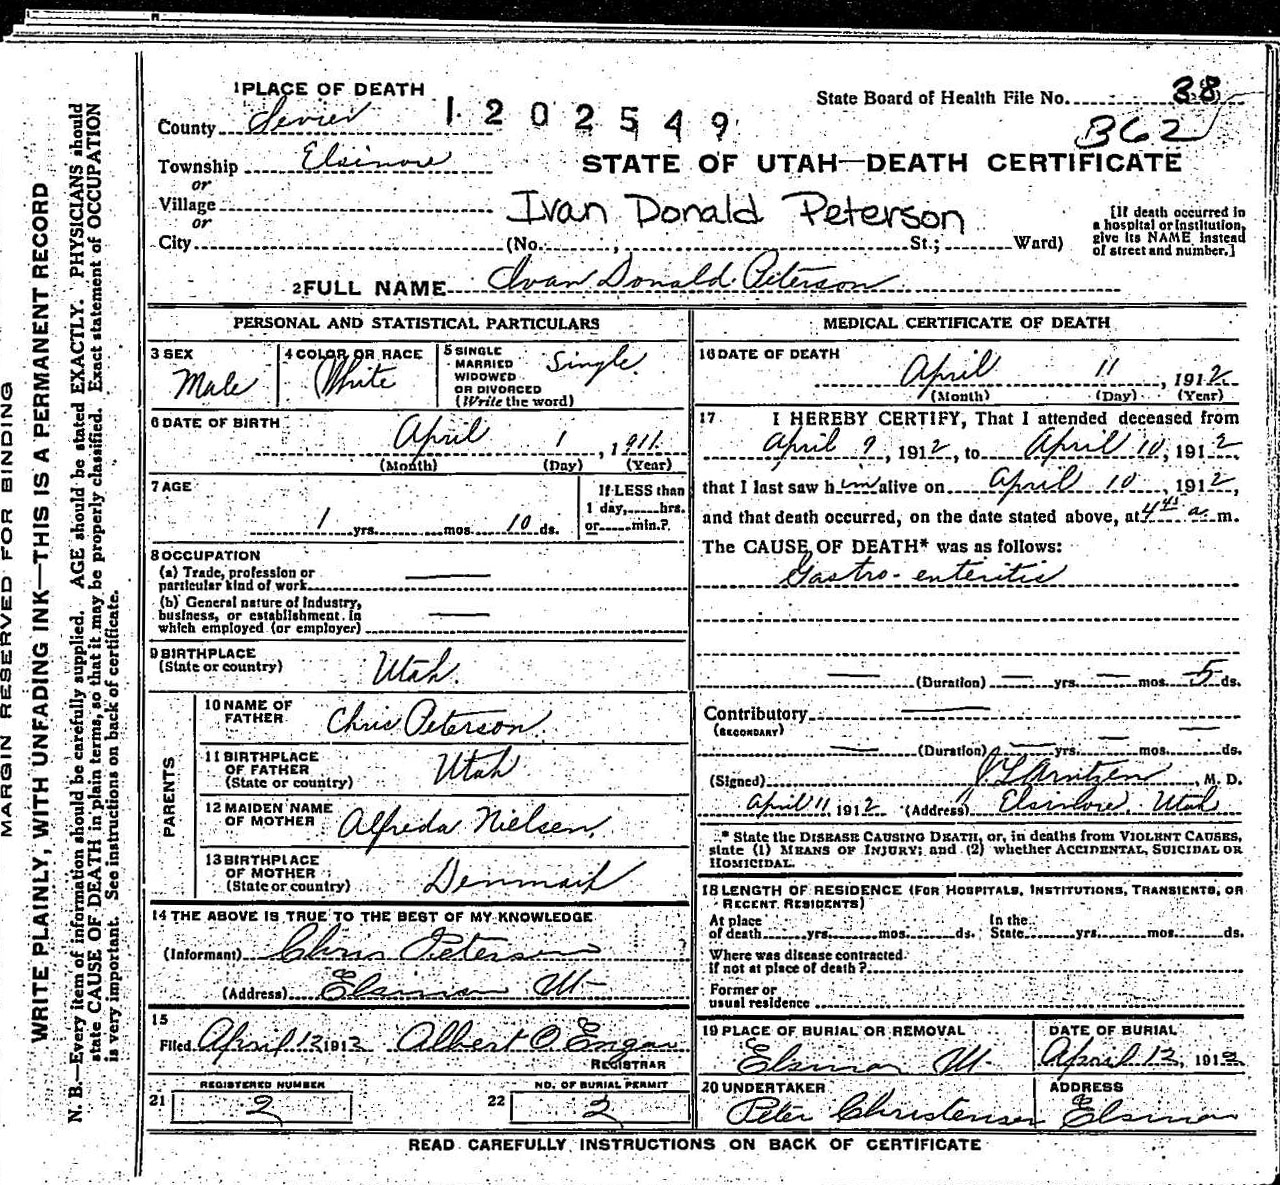 MARGIN RESERVED FOR BINDING
WRITE PLAINLY, WITH UNFADING INK—THIS IS A PERMANENT RECORD
N. B.—Every item of information should be carefully supplied. AGE should be stated EXACTLY. PHYSICIANS should
state CAUSE OF DEATH in plain terms, so that it may be properly classified. Exact statement of OCCUPATION
is very important. See instructions on back of certificate.
1 PLACE OF DEATH
1202549
State Board of Health File No. 38
362
County Sevier
Township Elsinore
STATE OF UTAH—DEATH CERTIFICATE
or
Village
or
Ivan Donald Peterson
City (No. , St.; Ward)
[If death occurred in
a hospital or institution,
give its NAME instead
of street and number.]
2 FULL NAME Ivan Donald Peterson
PERSONAL AND STATISTICAL PARTICULARS
3 SEX
Male
4 COLOR OR RACE
White
5 SINGLE
MARRIED
WIDOWED
OR DIVORCED
(Write the word)
Single
6 DATE OF BIRTH
April 1, 1911
(Month) (Day) (Year)
7 AGE
1 yrs. mos. 10 ds.
If LESS than
1 day, hrs.
or min.?
8 OCCUPATION
(a) Trade, profession or
particular kind of work —
(b) General nature of industry,
business, or establishment in
which employed (or employer) —
9 BIRTHPLACE
(State or country)
Utah
PARENTS
10 NAME OF
FATHER
Chris Peterson
11 BIRTHPLACE
OF FATHER
(State or country)
Utah
12 MAIDEN NAME
OF MOTHER
Alfreda Nielsen
13 BIRTHPLACE
OF MOTHER
(State or country)
Denmark
14 THE ABOVE IS TRUE TO THE BEST OF MY KNOWLEDGE
(Informant) Chris Peterson
(Address) Elsinore Ut
15
Filed April 12 1912 Albert O
REGISTRAR
REGISTERED NUMBER
21 2
NO. OF BURIAL PERMIT
22 2
MEDICAL CERTIFICATE OF DEATH
16 DATE OF DEATH
April 11, 1912
(Month) (Day) (Year)
17 I HEREBY CERTIFY, That I attended deceased from
April 9, 1912, to April 10, 1912
that I last saw him alive on April 10, 1912,
and that death occurred, on the date stated above, at 4 45 a. m.
The CAUSE OF DEATH* was as follows:
Gastro-enteritis
— (Duration) — yrs. — mos. 5 ds.
Contributory —
(SECONDARY)
— (Duration) — yrs. — mos. — ds.
(Signed) J L Arntzen, M. D.
April 11, 1912 (Address) Elsinore, Utah
* State the DISEASE CAUSING DEATH, or, in deaths from VIOLENT CAUSES,
state (1) MEANS OF INJURY; and (2) whether ACCIDENTAL, SUICIDAL OR
HOMICIDAL.
18 LENGTH OF RESIDENCE (FOR HOSPITALS, INSTITUTIONS, TRANSIENTS, OR
RECENT RESIDENTS)
At place
of death yrs. mos. ds.
In the
State yrs. mos. ds.
Where was disease contracted
if not at place of death?
Former or
usual residence
19 PLACE OF BURIAL OR REMOVAL
Elsinore Ut.
DATE OF BURIAL
April 12, 1912
20 UNDERTAKER
Peter Christensen
ADDRESS
Elsinore
READ CAREFULLY INSTRUCTIONS ON BACK OF CERTIFICATE